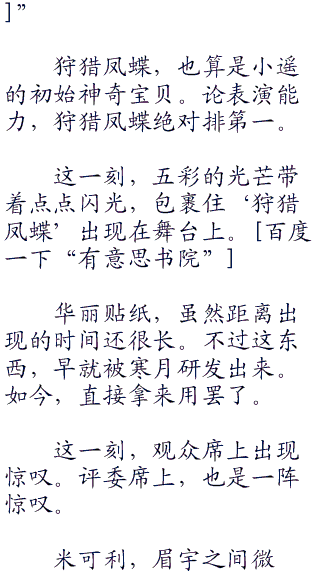 ]”
狩猎凤蝶，也算是小遥
的初始神奇宝贝。论表演能
力，狩猎凤蝶绝对排第一。
这一刻，五彩的光芒带
着点点闪光，包裹住‘狩猎
凤蝶’出现在舞台上。[百度
一下“有意思书院”]
华丽贴纸，虽然距离出
现的时间还很长。不过这东
西，早就被寒月研发出来。
如今，直接拿来用罢了。
这一刻，观众席上出现
惊叹。评委席上，也是一阵
惊叹。
米可利，眉宇之间微